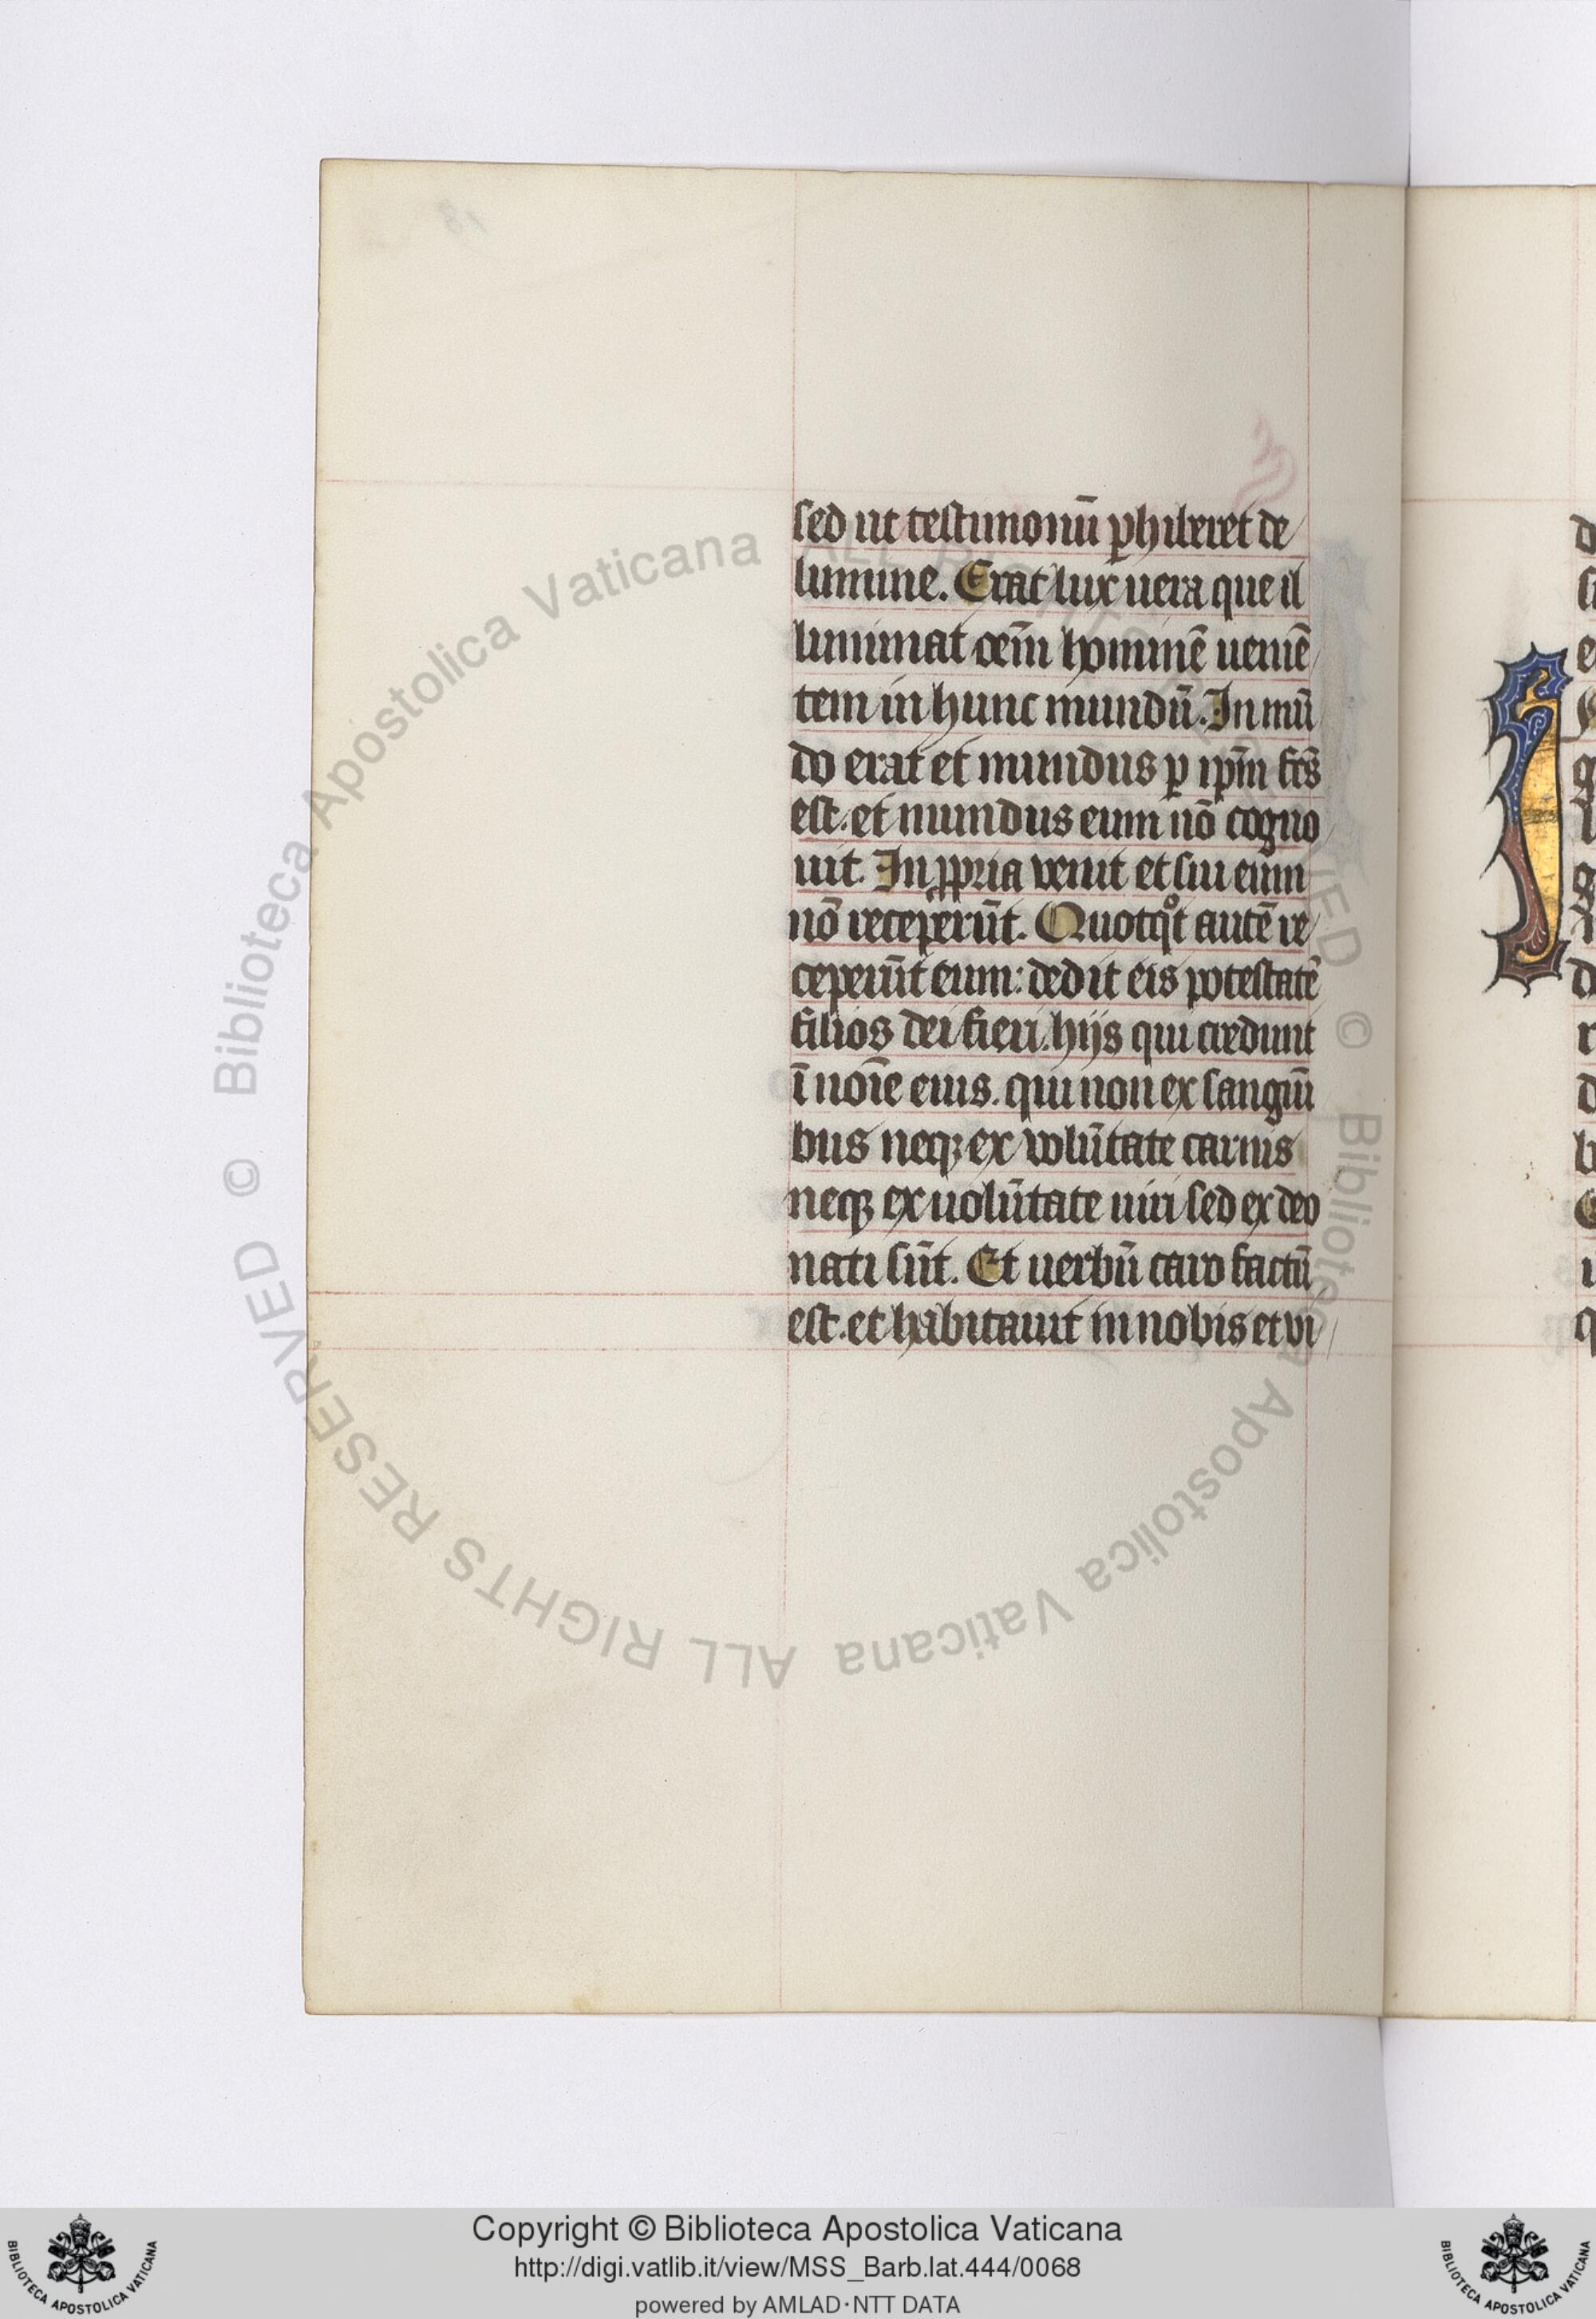 sed ut testimoniū ꝑhiberet de
lumine. Erat lux uera que il
luminat oēm hominē ueniē
tem in hunc mundū. In mū
do erat et mundus ꝑ ip̄m fc̄s
est. et mundus eum nō cogno
uit. In ꝓpria venit et sui eum
nō receperūt. Quotqͦt autē re
ceperūt eum: dedit eis potestatē
filios dei fieri. hijs qui credunt
ī noīe eius. qui non ex sanguī
bus neqꝫ ex volūtate carnis
neqꝫ ex uolūtate uiri sed ex deo
nati sūt. Et uerbū caro factū
est. et habitauit in nobis et vi
Biblioteca Apostolica Vaticana ALL RIGHTS RESERVED ©
Biblioteca Apostolica Vaticana ALL RIGHTS RESERVED ©
Copyright © Biblioteca Apostolica Vaticana
http://digi.vatlib.it/view/MSS_Barb.lat.444/0068
powered by AMLAD·NTT DATA
BIBLIOTECA APOSTOLICA VATICANA
BIBLIOTECA APOSTOLICA VATICANA